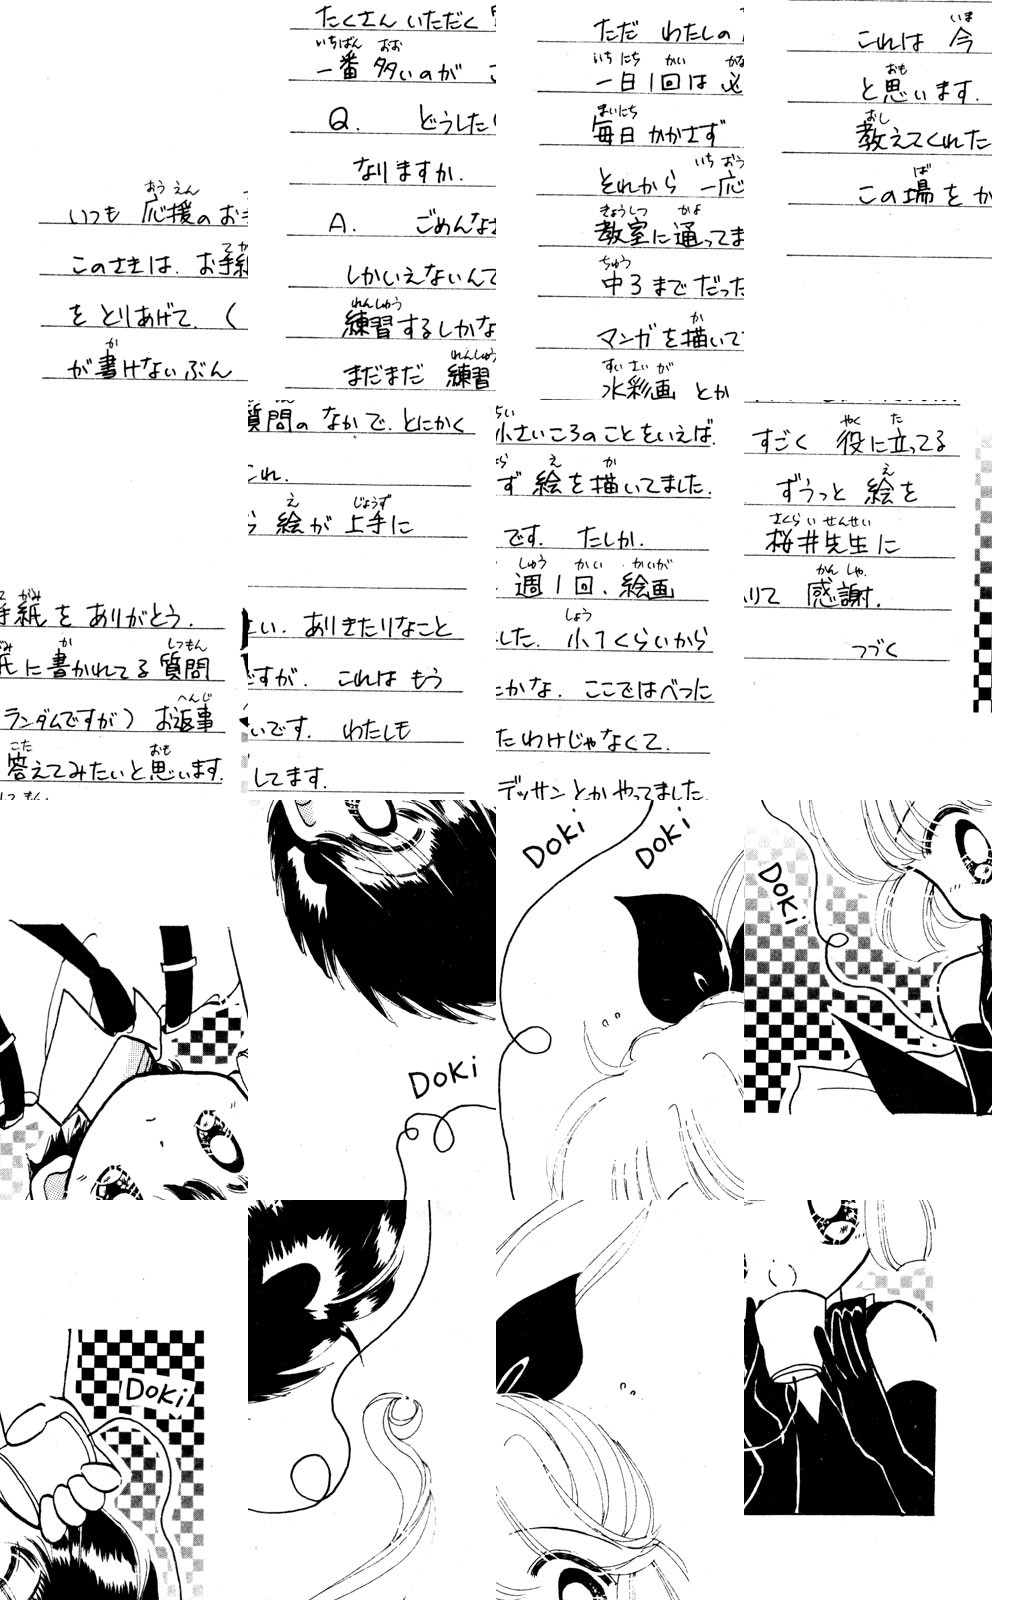 いつも 応援のお
このさきは、お手紙
をとりあげて、く
が書けないぶん
たくさん いただく
一番 多いのが
Q. どうした
なりますか.
A. ごめんな
しかいえないんで
練習するしかな
まだまだ 練習
ただ わたしの
一日1回は 必
毎日 かかさず
それから 一応
教室に通ってま
中3まで だった
マンガを描いて
水彩画 とか
これは 今
と思います.
教えてくれた
この場をか
手紙を ありがとう.
に書かれてる 質問
ランダムですが) お返事
答えてみたいと思います.
質問の なかで、とにかく
これ.
絵が 上手に
い. ありきたりなこと
ですが. これは もう
いです. わたしも
してます.
小さいころのことをいえば.
ず 絵を描いてました.
です. たしか.
週1回、絵画
した. 小1くらいから
かな. ここではべつに
たわけじゃなくて.
デッサンとか やってました.
すごく 役に立ってる
ずうっと 絵を
桜井先生に
りて 感謝.
つづく
DOKI
DOKI
DOKI
DOKI
DOKI